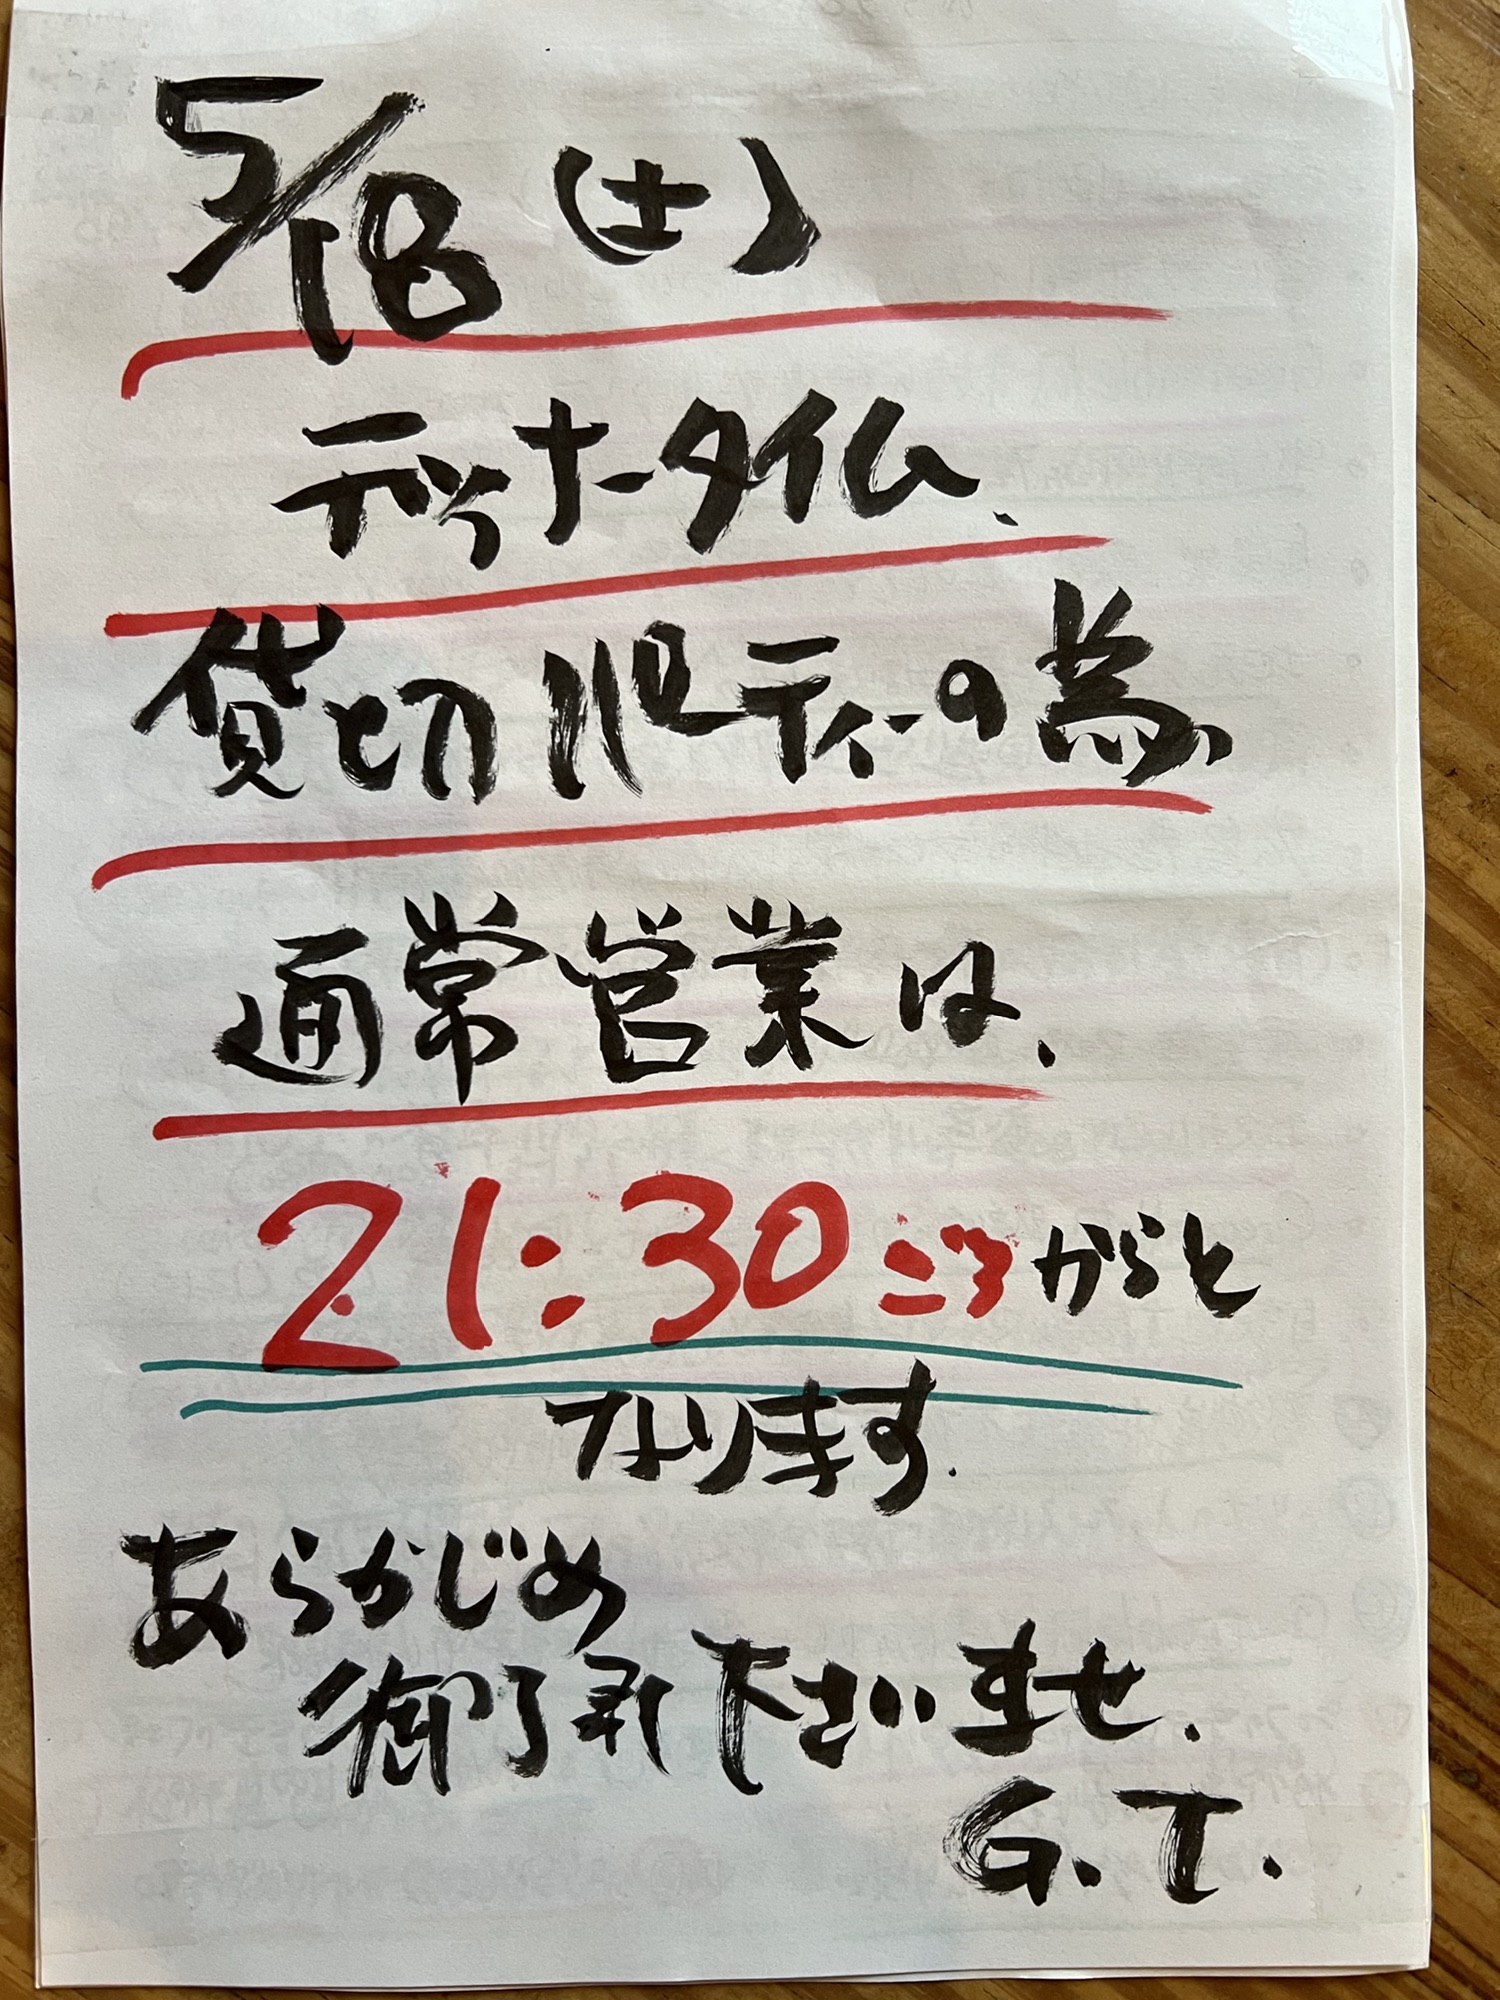 5/18 (土)
ディナータイム、
貸切パーティーの為、
通常営業は、
21:30ごろからと
なります.
あらかじめ
御了承下さいませ.
G.T.